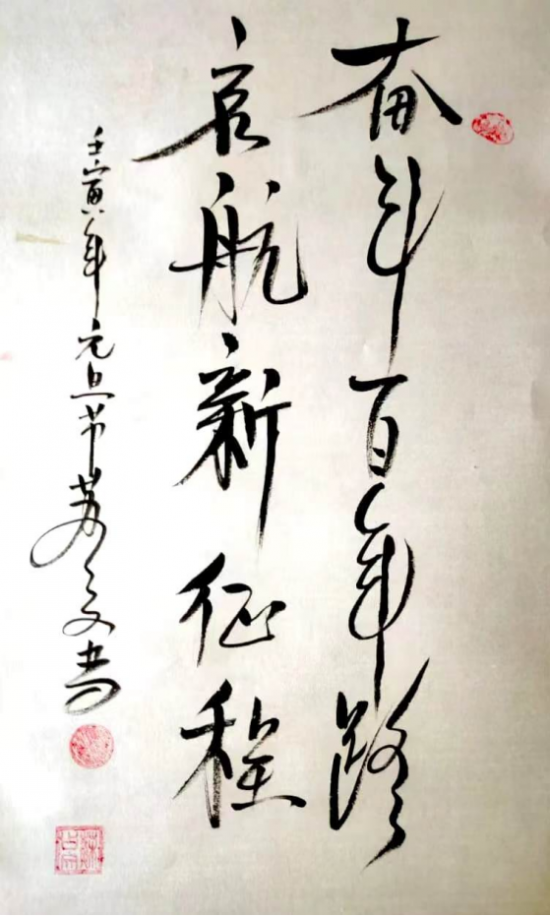 奋斗百年路
启航新征程
壬寅年元旦节苏文书